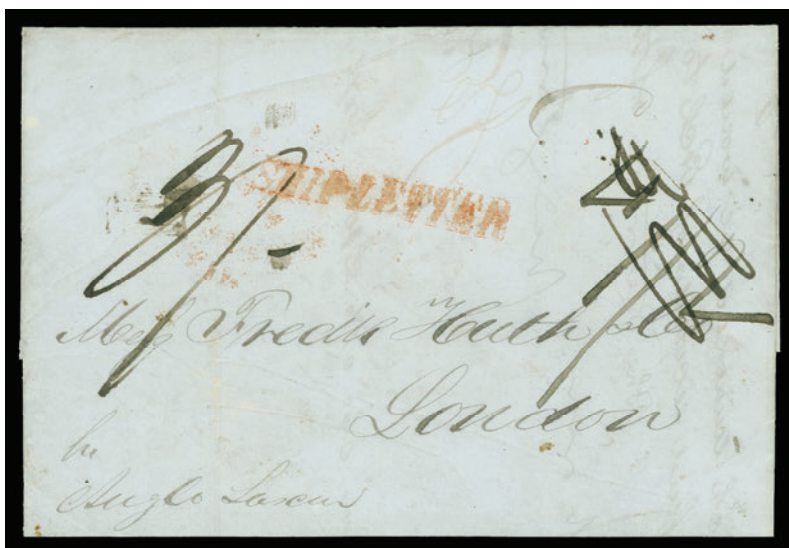 3/-
SHIP-LETTER
Messrs Fredk Huth & Co
London
per
Anglo Saxon